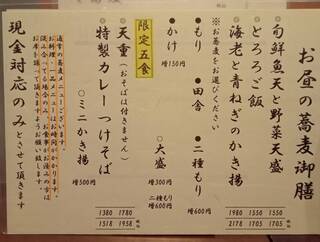 お昼の蕎麦御膳
・旬鮮魚天と野菜天盛 1550 1705
・とろろご飯 1550 1705
・海老と青ねぎのかき揚 1980 2178
※お蕎麦をお選びください
●もり ●田舎 ●二種もり 增600円
●かけ 增150円 ○大盛 增300円
二種もり 增600円
限定五食
・天重(おそばは付きません) 1780 1958
・特製カレーつけそば 1380 1518
○ミニかき揚 增500円
通常の蕎麦メニューございます。
お料理、一品メニューはお時間がかかります。
現金対応のみとさせて頂きます